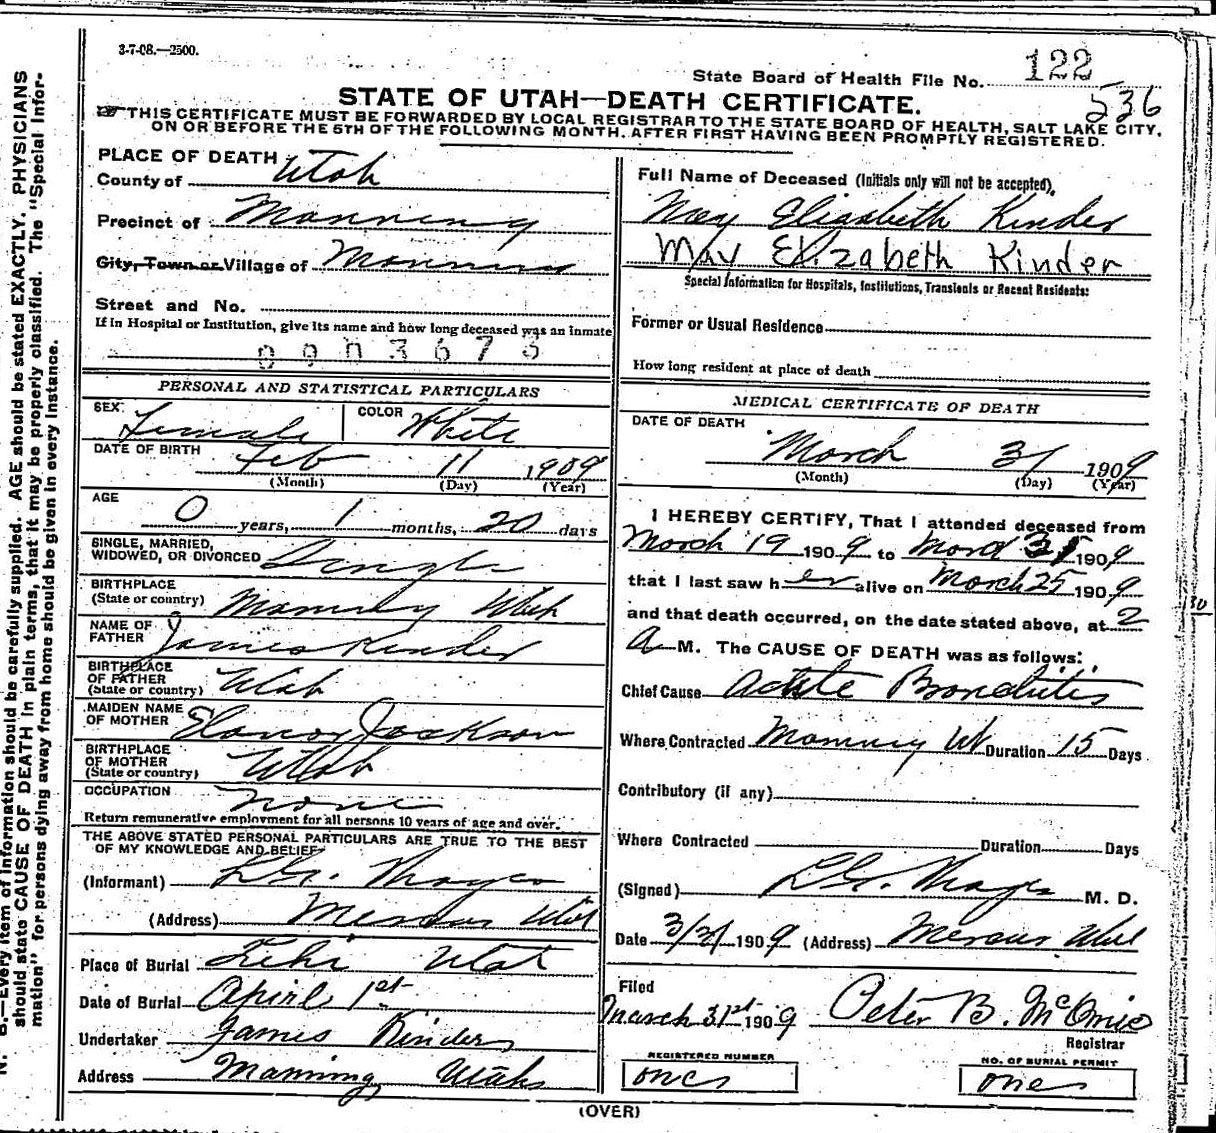 3-7-08.—2500.
State Board of Health File No. 122
536
STATE OF UTAH—DEATH CERTIFICATE.
☞ THIS CERTIFICATE MUST BE FORWARDED BY LOCAL REGISTRAR TO THE STATE BOARD OF HEALTH, SALT LAKE CITY,
ON OR BEFORE THE 5TH OF THE FOLLOWING MONTH, AFTER FIRST HAVING BEEN PROMPTLY REGISTERED.
PLACE OF DEATH
County of Utah
Precinct of Manning
City, Town or Village of Manning
Street and No.
If in Hospital or Institution, give its name and how long deceased was an inmate
0003673
PERSONAL AND STATISTICAL PARTICULARS
SEX Female COLOR White
DATE OF BIRTH Feb 11 1909
(Month) (Day) (Year)
AGE
0 years, 1 months, 20 days
SINGLE, MARRIED,
WIDOWED, OR DIVORCED Single
BIRTHPLACE
(State or country) Manning Utah
NAME OF
FATHER James Kinder
BIRTHPLACE
OF FATHER
(State or country) Utah
MAIDEN NAME
OF MOTHER Jackson
BIRTHPLACE
OF MOTHER
(State or country) Utah
OCCUPATION none
Return remunerative employment for all persons 10 years of age and over.
THE ABOVE STATED PERSONAL PARTICULARS ARE TRUE TO THE BEST
OF MY KNOWLEDGE AND BELIEF
(Informant)
(Address) Mercur Utah
Place of Burial Lehi Utah
Date of Burial April 1st
Undertaker James Kinder
Address Manning Utah
Full Name of Deceased (Initials only will not be accepted).
May Elisabeth Kinder
May Elizabeth Kinder
Special Information for Hospitals, Institutions, Transients or Recent Residents:
Former or Usual Residence
How long resident at place of death
MEDICAL CERTIFICATE OF DEATH
DATE OF DEATH
March 31 1909
(Month) (Day) (Year)
I HEREBY CERTIFY, That I attended deceased from
March 19 1909 to March 31 1909
that I last saw her alive on March 25 1909
and that death occurred, on the date stated above, at 2
A M. The CAUSE OF DEATH was as follows:
Chief Cause Acute Bronchitis
Where Contracted Manning Ut Duration 15 Days
Contributory (if any)
Where Contracted Duration Days
(Signed) M. D.
Date 3/31 1909 (Address) Mercur Utah
Filed
March 31st 1909 Peter B.
Registrar
REGISTERED NUMBER
one
NO. OF BURIAL PERMIT
one
(OVER)
N. B.—Every item of information should be carefully supplied. AGE should be stated EXACTLY. PHYSICIANS
should state CAUSE OF DEATH in plain terms, that it may be properly classified. The "Special Infor-
mation" for persons dying away from home should be given in every instance.
30